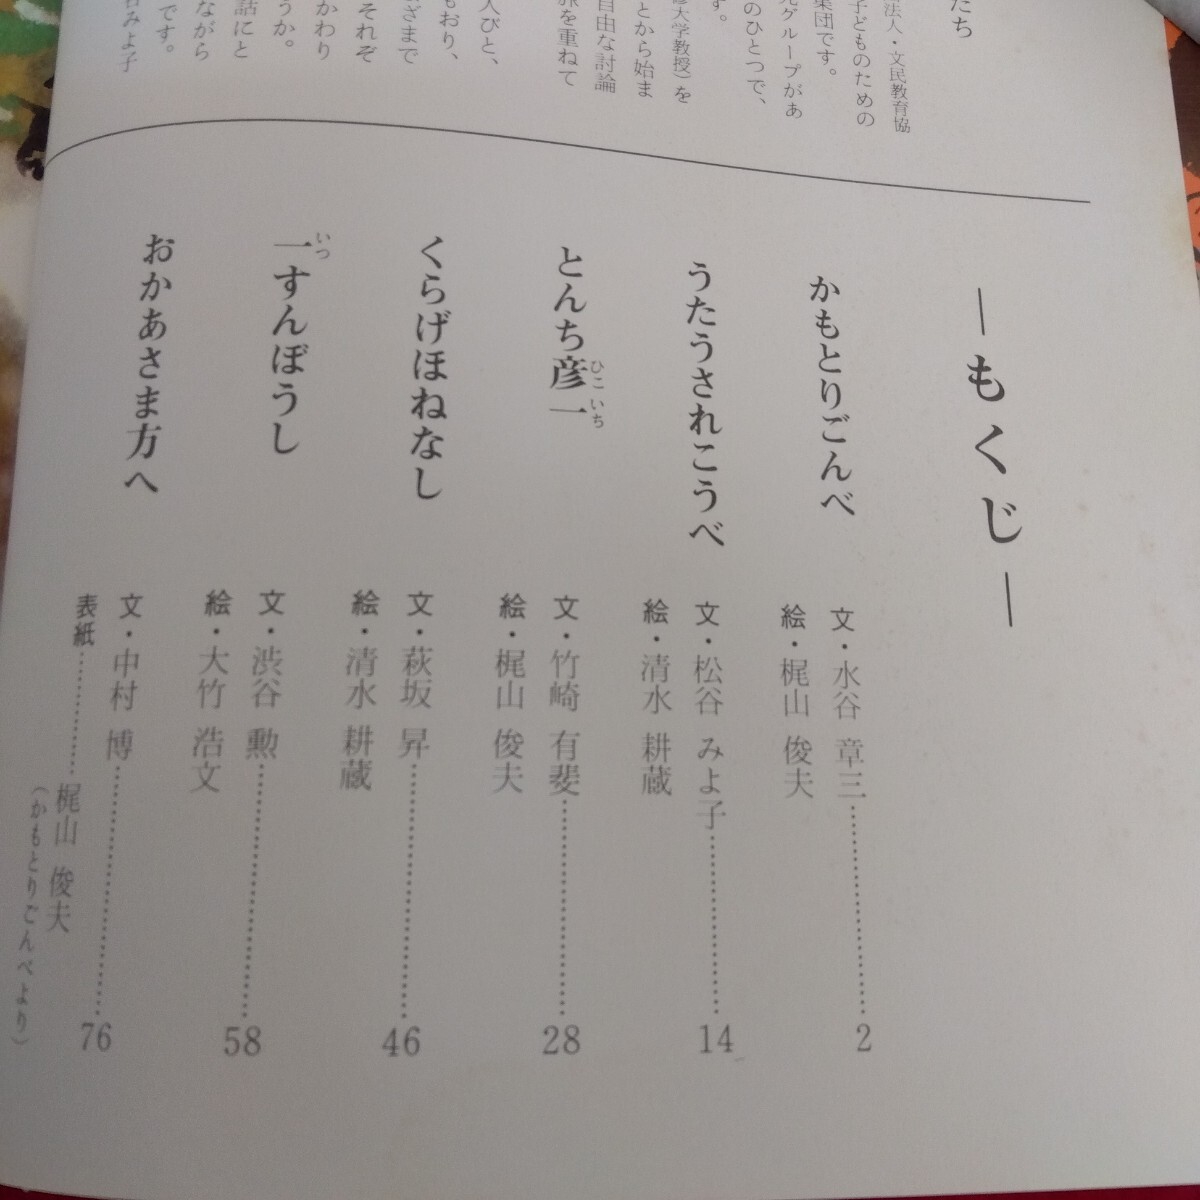 たち
法人・文民教育協
子どものための
集団です。
究グループがあ
のひとつで、
す。
大学教授）を
とから始ま
自由な討論
旅を重ねて
人びと、
もおり、
ざまで
それぞ
かわり
うか。
話にと
ながら
です。
谷みよ子
―もくじ―
かもとりごんべ
文・水谷 章三 2
絵・梶山 俊夫
うたうされこうべ
文・松谷 みよ子 14
絵・清水 耕蔵
とんち彦一
ひこ いち
文・竹崎 有斐 28
絵・梶山 俊夫
くらげほねなし
文・萩坂 昇 46
絵・清水 耕蔵
一すんぼうし
いつ
文・渋谷 勲 58
絵・大竹 浩文
おかあさま方へ
文・中村 博 76
表紙 梶山 俊夫
（かもとりごんべより）